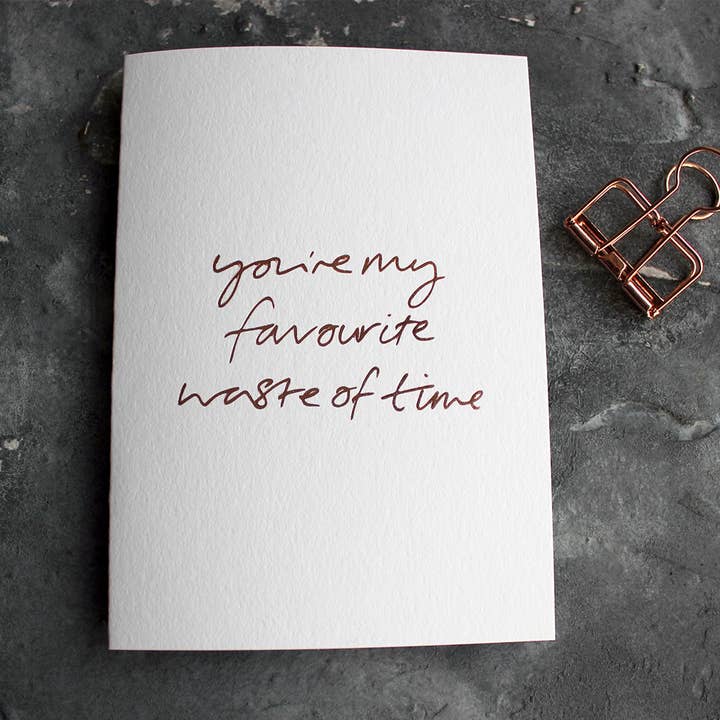 you're my
favourite
waste of time